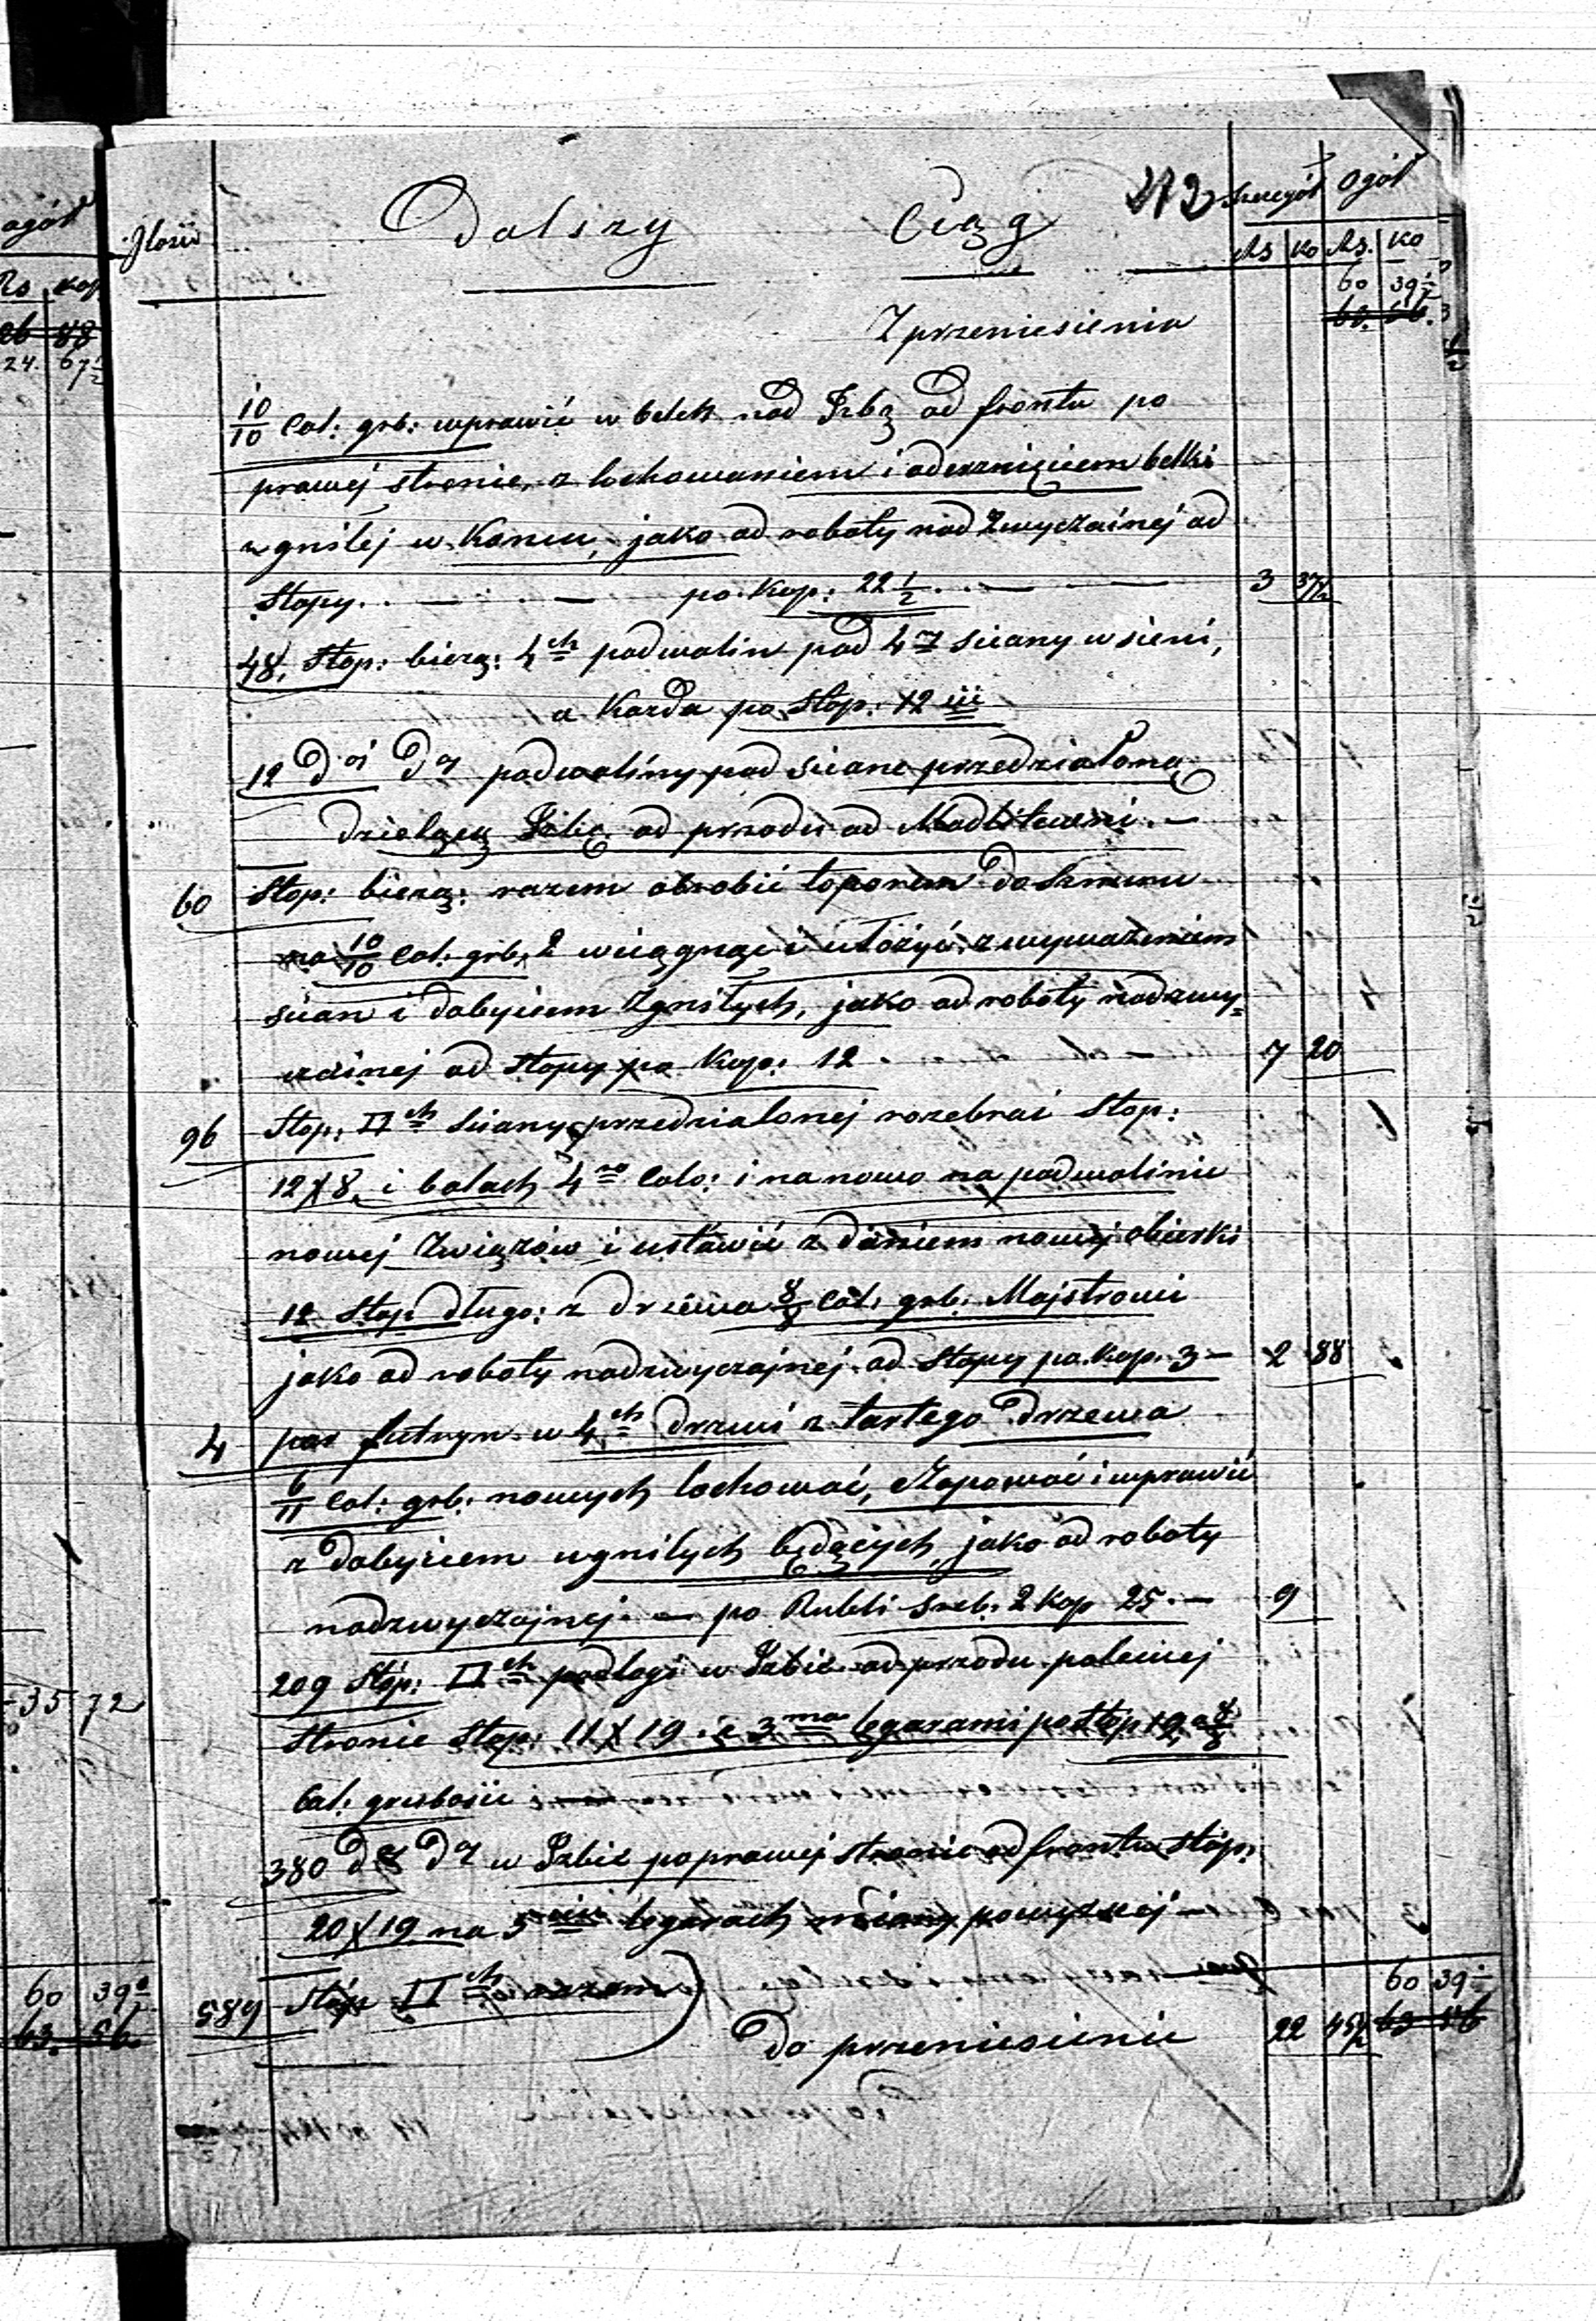 ogół
Rs kop
26 88
24. 67 1/2
35 72
60 39 1/2
63. 56
Ilość Dalszy Ciąg 212 Szczegół Ogół
Rs Ko Rs. Ko
60 39 1/2
Z przeniesienia 63. 56.
10/10 Cal: grb: wprawić w belek nad Izbą od frontu po
prawej stronie, z lochowaniem i oderznięciem belki
zgniłej w Koncu, jako od roboty nad Zwyczainej od
Stopy. — — po Kop: 22 1/2. — — 3 37 1/2
48, Stop: bieżą: 4ch podwalin pod 4ry sciany w sieni,
a Kazda po Stop: 12
12 podwaliny pod scianę przedziałową
dzielącą Izbę od przodu od Modlitewni. —
60 Stop: bieżą: razem obrobić toporem do Sznuru
na 10/10 Cal: grb: wciągnąć i ułożyć, z wyważeniem
scian i dobyciem Zgniłych, jako od roboty nadzwy=
czainej od stopy po Kop: 12 — 7 20
96 Stop: □ch sciany przedziałonej rozebrać Stop:
12 X 8, i balach 4ro Calo: i na nowo na podwalinie
nowej Związów i ustawić z daniem nowej obierki
12 Stop długo: z drzewa 8/8 Cal: grb: Majstrowi
jako od roboty nadzwyczajnej od Stopy po. Kop. 3 — 2 88
4 par futryn w 4ch drzwi z tartego drzewa
6/11 Cal: grb: nowych lochować, czopować i wprawić
z dobyciem zgniłych będących, jako od roboty
nadzwyczajnej. — po Rubli sreb: 2 Kop 25. — 9
209 Stop: □ch podłogi w Izbie od przodu po lewej
stronie Stop: 11 X 19. i 3ma legarami po Stop 19, a 8/8
Cal: grubości
380 w Izbie po prawej stronie od frontu Stop:
20 X 19 na 5ciu legarach miary powyższej —
589 Stop □ch razem)
do przeniesienia 22 45 1/2 60 39 1/2
63 56